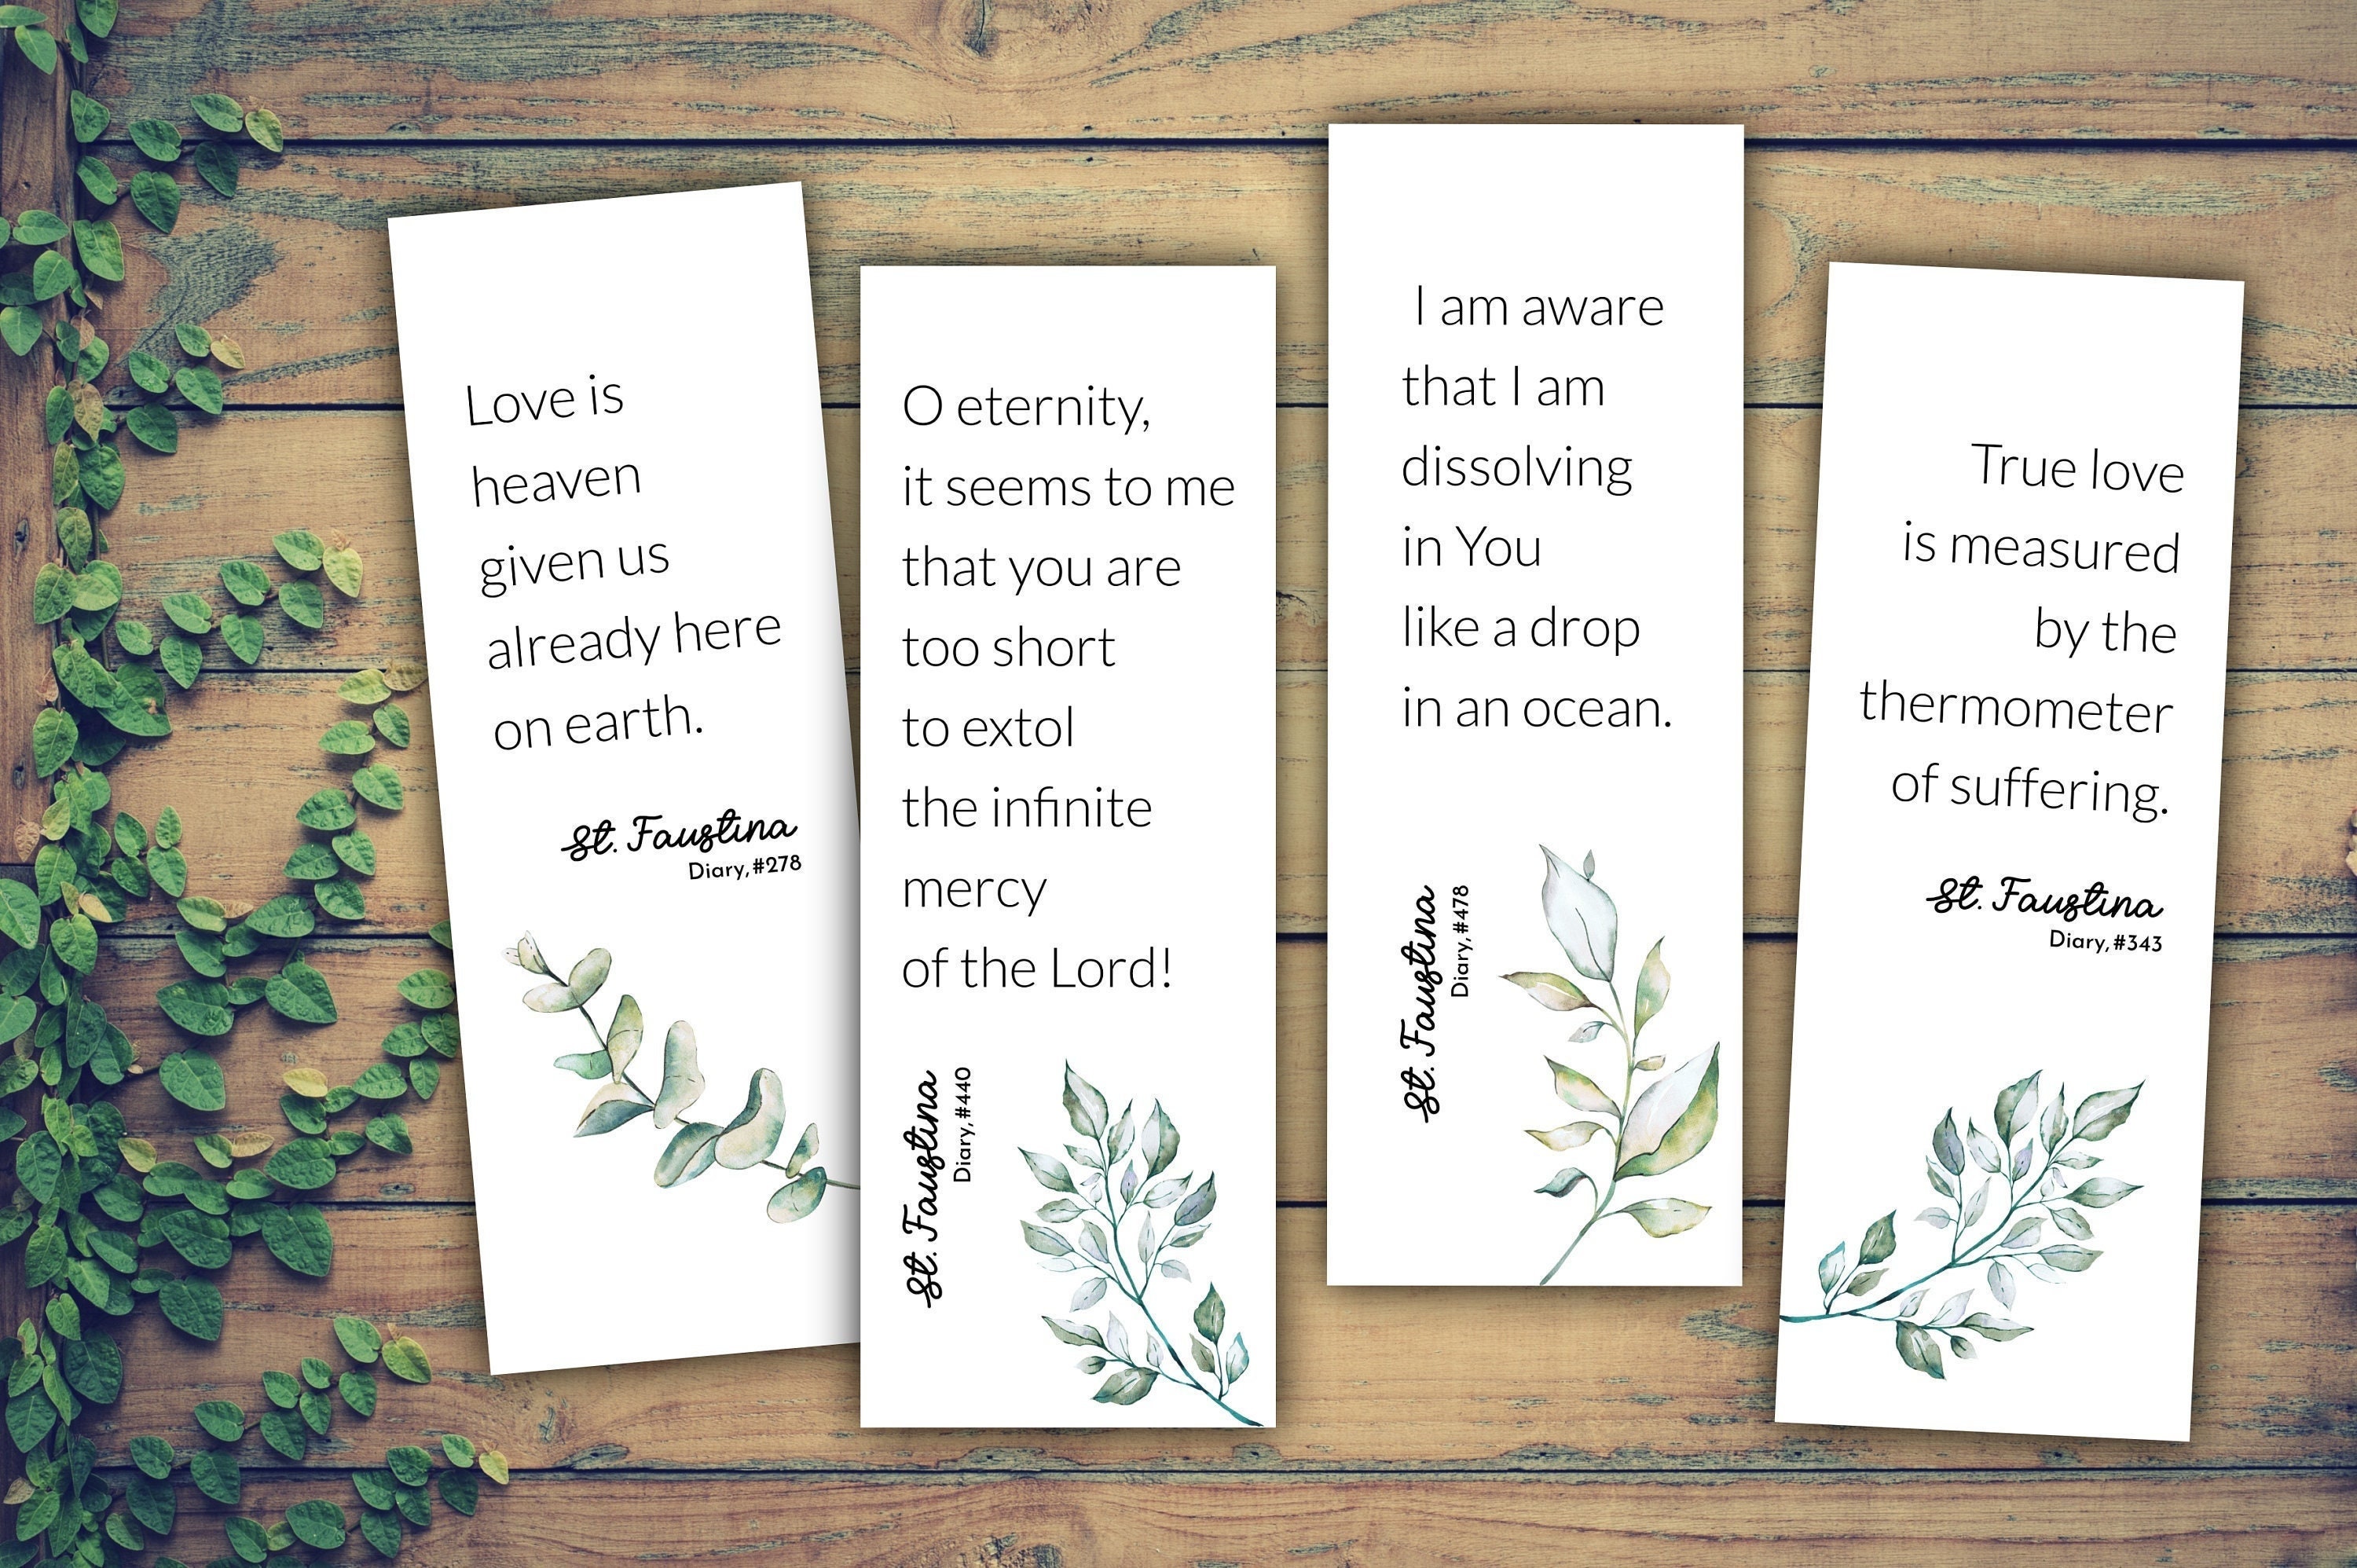 Love is
heaven
given us
already here
on earth.
St. Faustina
Diary, #278
O eternity,
it seems to me
that you are
too short
to extol
the infinite
mercy
of the Lord!
St. Faustina
Diary, #440
I am aware
that I am
dissolving
in You
like a drop
in an ocean.
St. Faustina
Diary, #478
True love
is measured
by the
thermometer
of suffering.
St. Faustina
Diary, #343